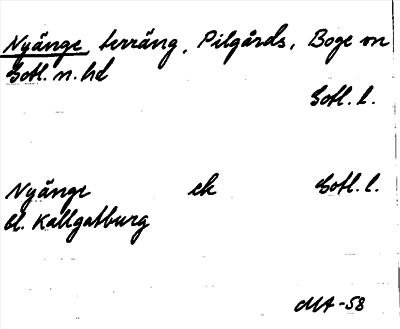 Nyänge terräng, Pilgårds, Boge sn
Gotl. n. hd
Gotl. l.
Nyänge ek Gotl. l.
bl. Kallgatburg
MA -58